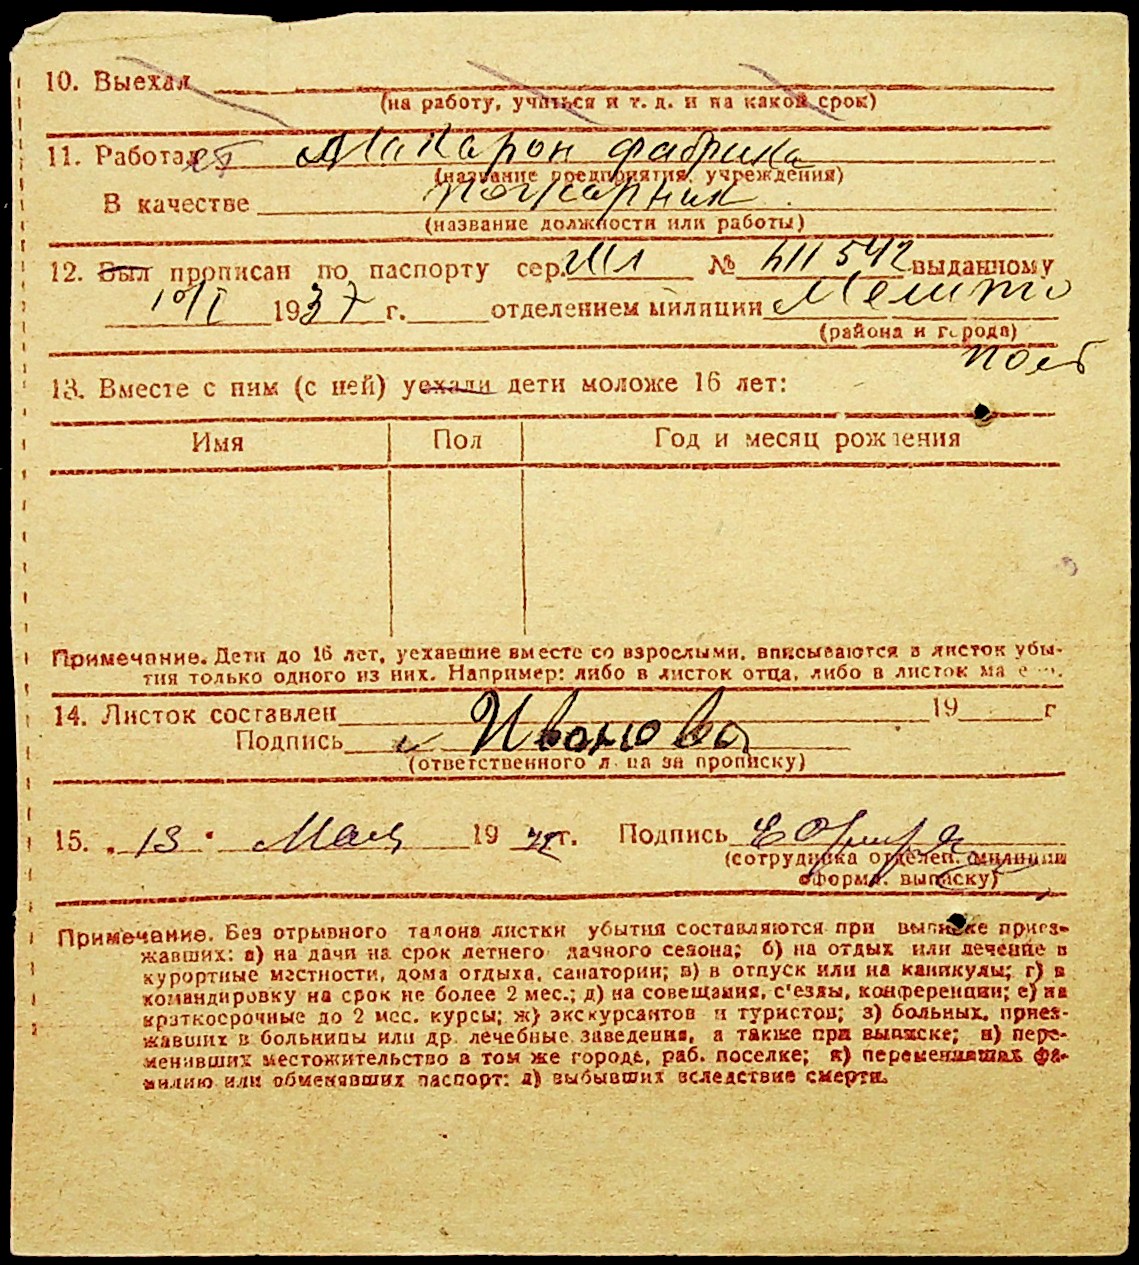 10. Выехал
(на работу, учиться и т. д. и на какой срок)
11. Работает Макарон фабрика
(название предприятия, учреждения)
В качестве пожарник
(название должности или работы)
12. Был прописан по паспорту сер. № 542 выданному
1937 г. отделением милиции Мелито
(района и города)
поль
13. Вместе с ним (с ней) уехали дети моложе 16 лет:
Имя Пол Год и месяц рождения
Примечание. Дети до 16 лет, уехавшие вместе со взрослыми, вписываются в листок убы-
тия только одного из них. Например: либо в листок отца, либо в листок
14. Листок составлен 19 г
Подпись Иванова
(ответственного лица за прописку)
15. 13 Мая 19 г. Подпись
(сотрудника отделен. милиции
оформ. выписку)
Примечание. Без отрывного талона листки убытия составляются при выписке приез-
жавших: а) на дачи на срок летнего дачного сезона; б) на отдых или лечение в
курортные местности, дома отдыха, санатории; в) в отпуск или на каникулы; г) в
командировку на срок не более 2 мес.; д) на совещания, с'езды, конференции; е) на
краткосрочные до 2 мес. курсы; ж) экскурсантов и туристов; з) больных, приез-
жавших в больницы или др. лечебные заведения, а также при выписке; и) пере-
менивших местожительство в том же городе, раб. поселке; к) переменивших фа-
милию или обменявших паспорт: л) выбывших вследствие смерти.